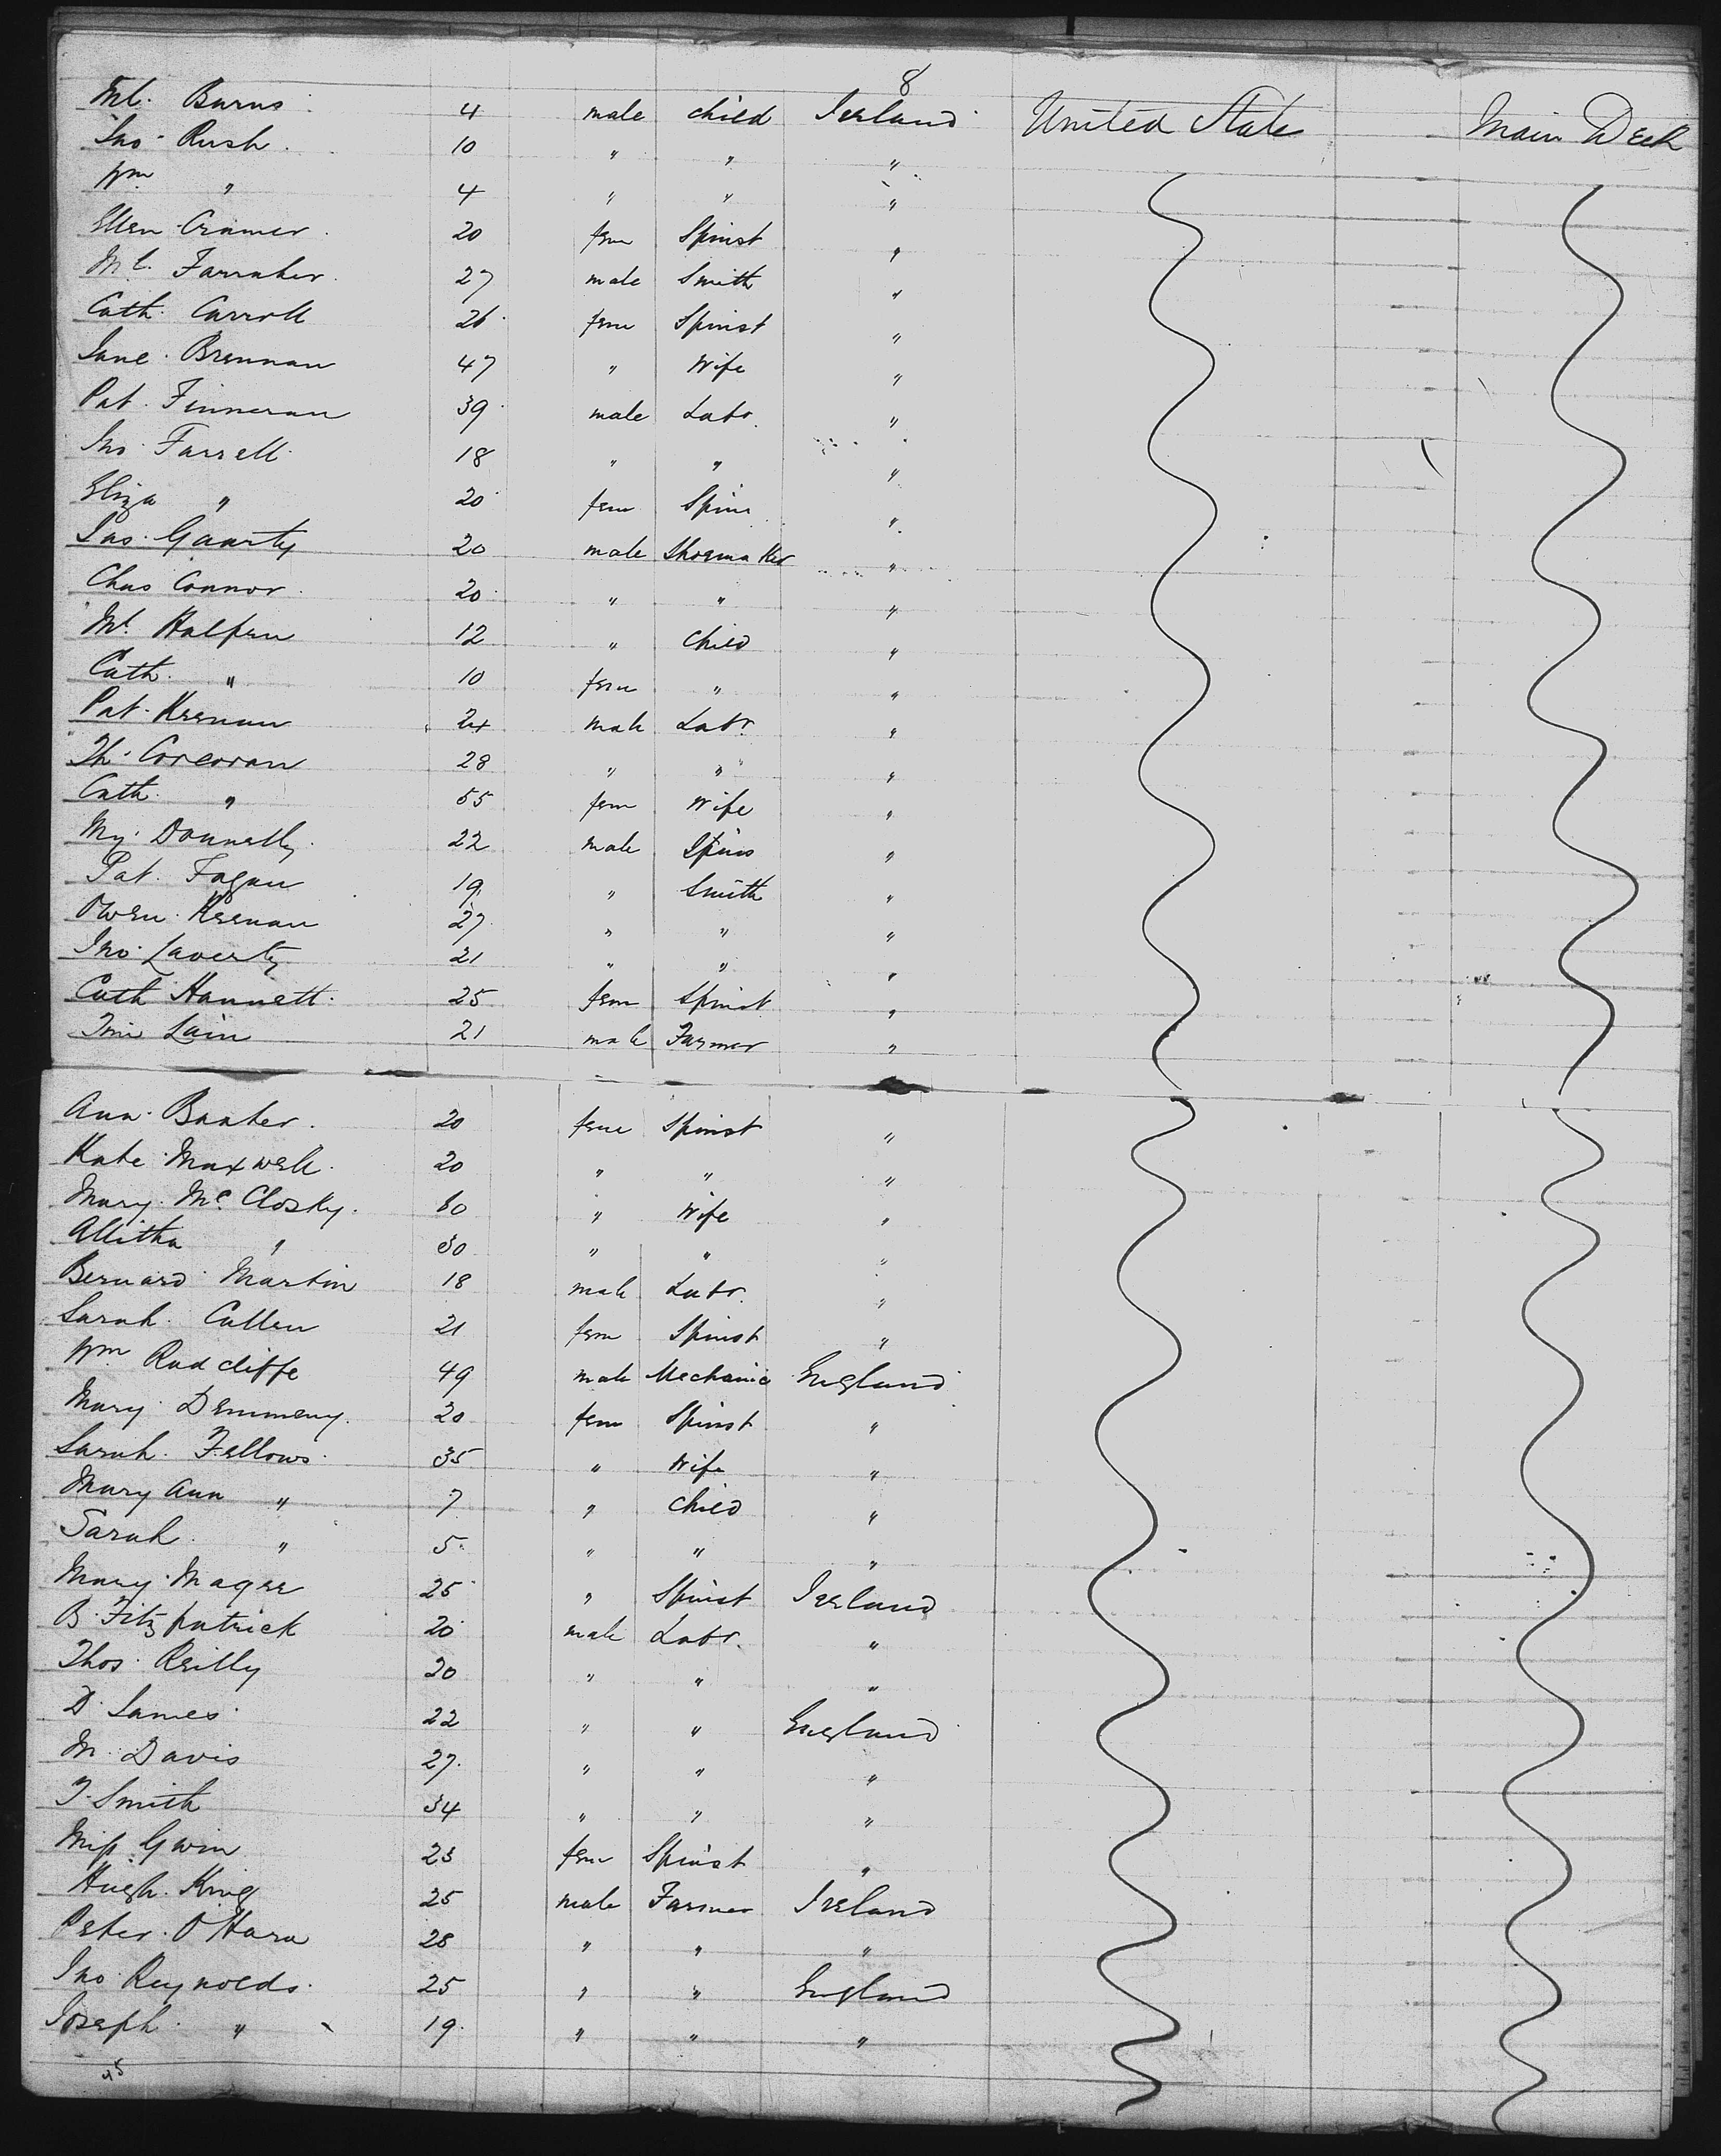 8
Ml. Burns 4 male child Ireland United States Main Deck
Jno Rush 10 " " "
Wm " 4 " " "
Ellen Cramer 20 fem Spinst "
Ml. Farraher 27 male Smith "
Cath. Carroll 26 fem Spinst "
Jane Brennan 47 " Wife "
Pat. Finneran 39 male Labr. "
Jno Farrell 18 " " "
Eliza " 20 fem Spins "
Jas. Gaarty 20 male Shoemaker "
Chas Connor 20 " " "
Ml. Halpen 12 " Child "
Cath. " 10 fem " "
Pat. Keenan 24 male Labr. "
Th. Corcoran 28 " " "
Cath. " 55 fem Wife "
My. Donnelly 22 male Spins "
Pat. Fagan 19 " Smith "
Owen Keenan 27 " " "
Jno Laverty 21 " " "
Cath Hannett 25 fem Spinst "
Tim Lain 21 male Farmer "
Ann Baxter 20 fem Spinst "
Kate Maxwell 20 " " "
Mary McClosky 60 " Wife "
Allitha " 30 " " "
Bernard Martin 18 male Labr. "
Sarah Cullen 21 fem Spinst "
Wm Radcliffe 49 male Mechanic England
Mary Demmeny 20 fem Spinst "
Sarah Fellows 35 " Wife "
Mary Ann " 7 " Child "
Sarah " 5 " " "
Mary Magee 25 " Spinst Ireland
B. Fitzpatrick 20 male Labr. "
Thos. Reilly 20 " " "
D. James 22 " " England
M. Davis 27 " " "
T. Smith 34 " " "
Miss Gwin 23 fem Spinst "
Hugh King 25 male Farmer Ireland
Peter O'Hara 28 " " "
Jno Reynolds 25 " " England
Joseph " 19 " " "
45